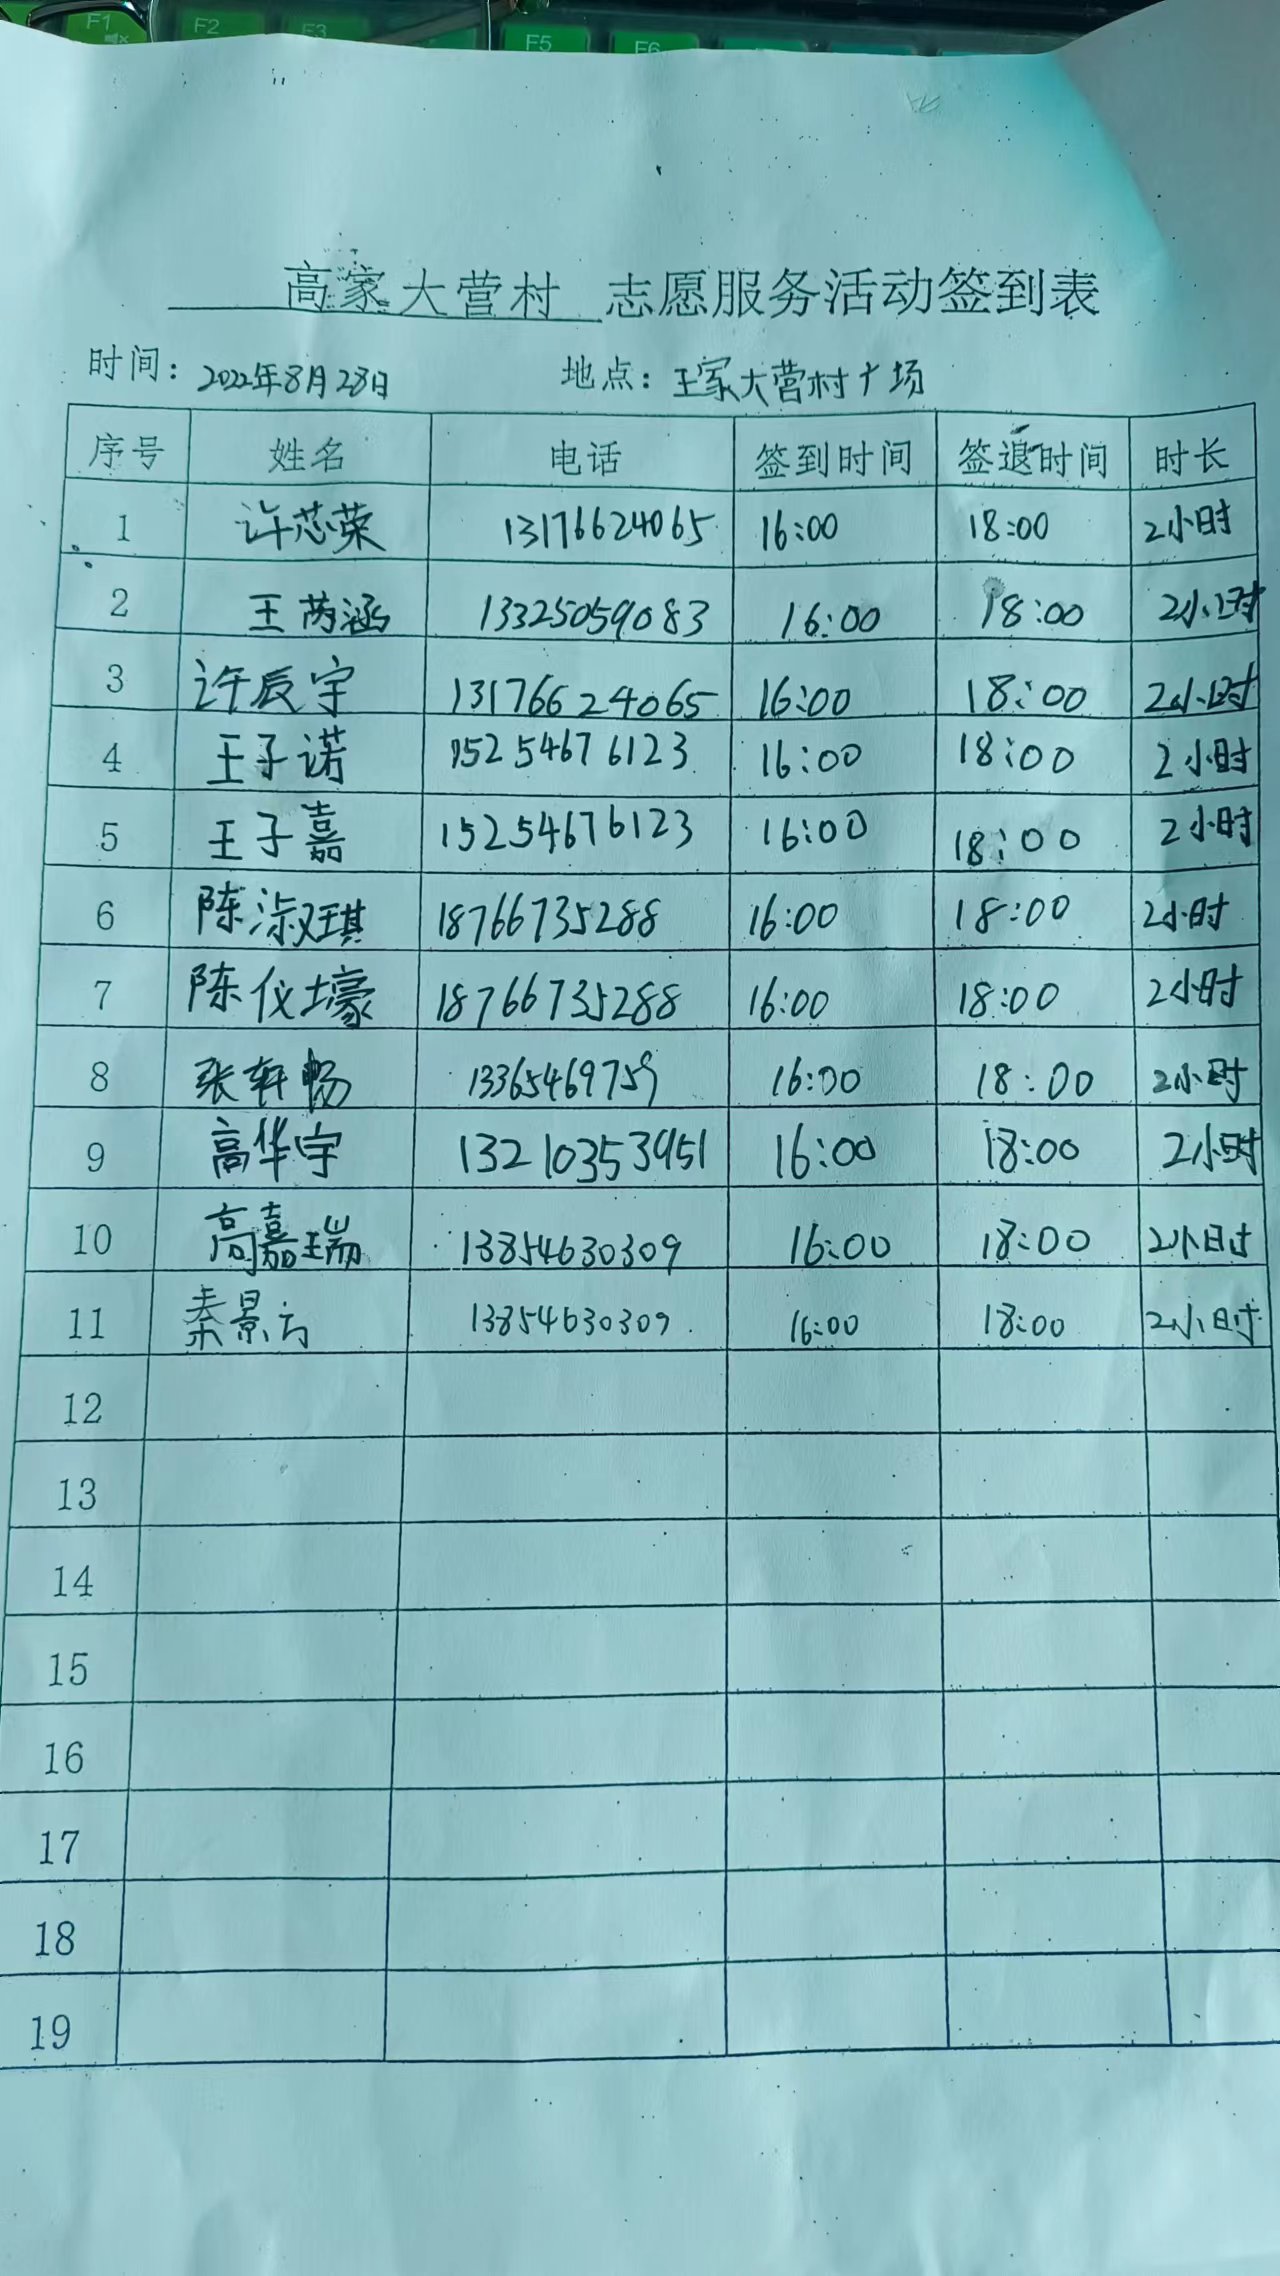 F1
F2
F3
F5
F6
高家大营村 志愿服务活动签到表
时间：2022年8月28日 地点：王家大营村广场
序号 姓名 电话 签到时间 签退时间 时长
1 许芯荣 13176624065 16:00 18:00 2小时
2 王芮涵 13325059083 16:00 18:00 2小时
3 许辰宇 13176624065 16:00 18:00 2小时
4 王子诺 15254676123 16:00 18:00 2小时
5 王子嘉 15254676123 16:00 18:00 2小时
6 陈淑琪 18766735288 16:00 18:00 2小时
7 陈仪壕 18766735288 16:00 18:00 2小时
8 张轩畅 13365469759 16:00 18:00 2小时
9 高华宇 13210353951 16:00 18:00 2小时
10 高嘉瑞 13854630309 16:00 18:00 2小时
11 秦景方 13854630309 16:00 18:00 2小时
12
13
14
15
16
17
18
19